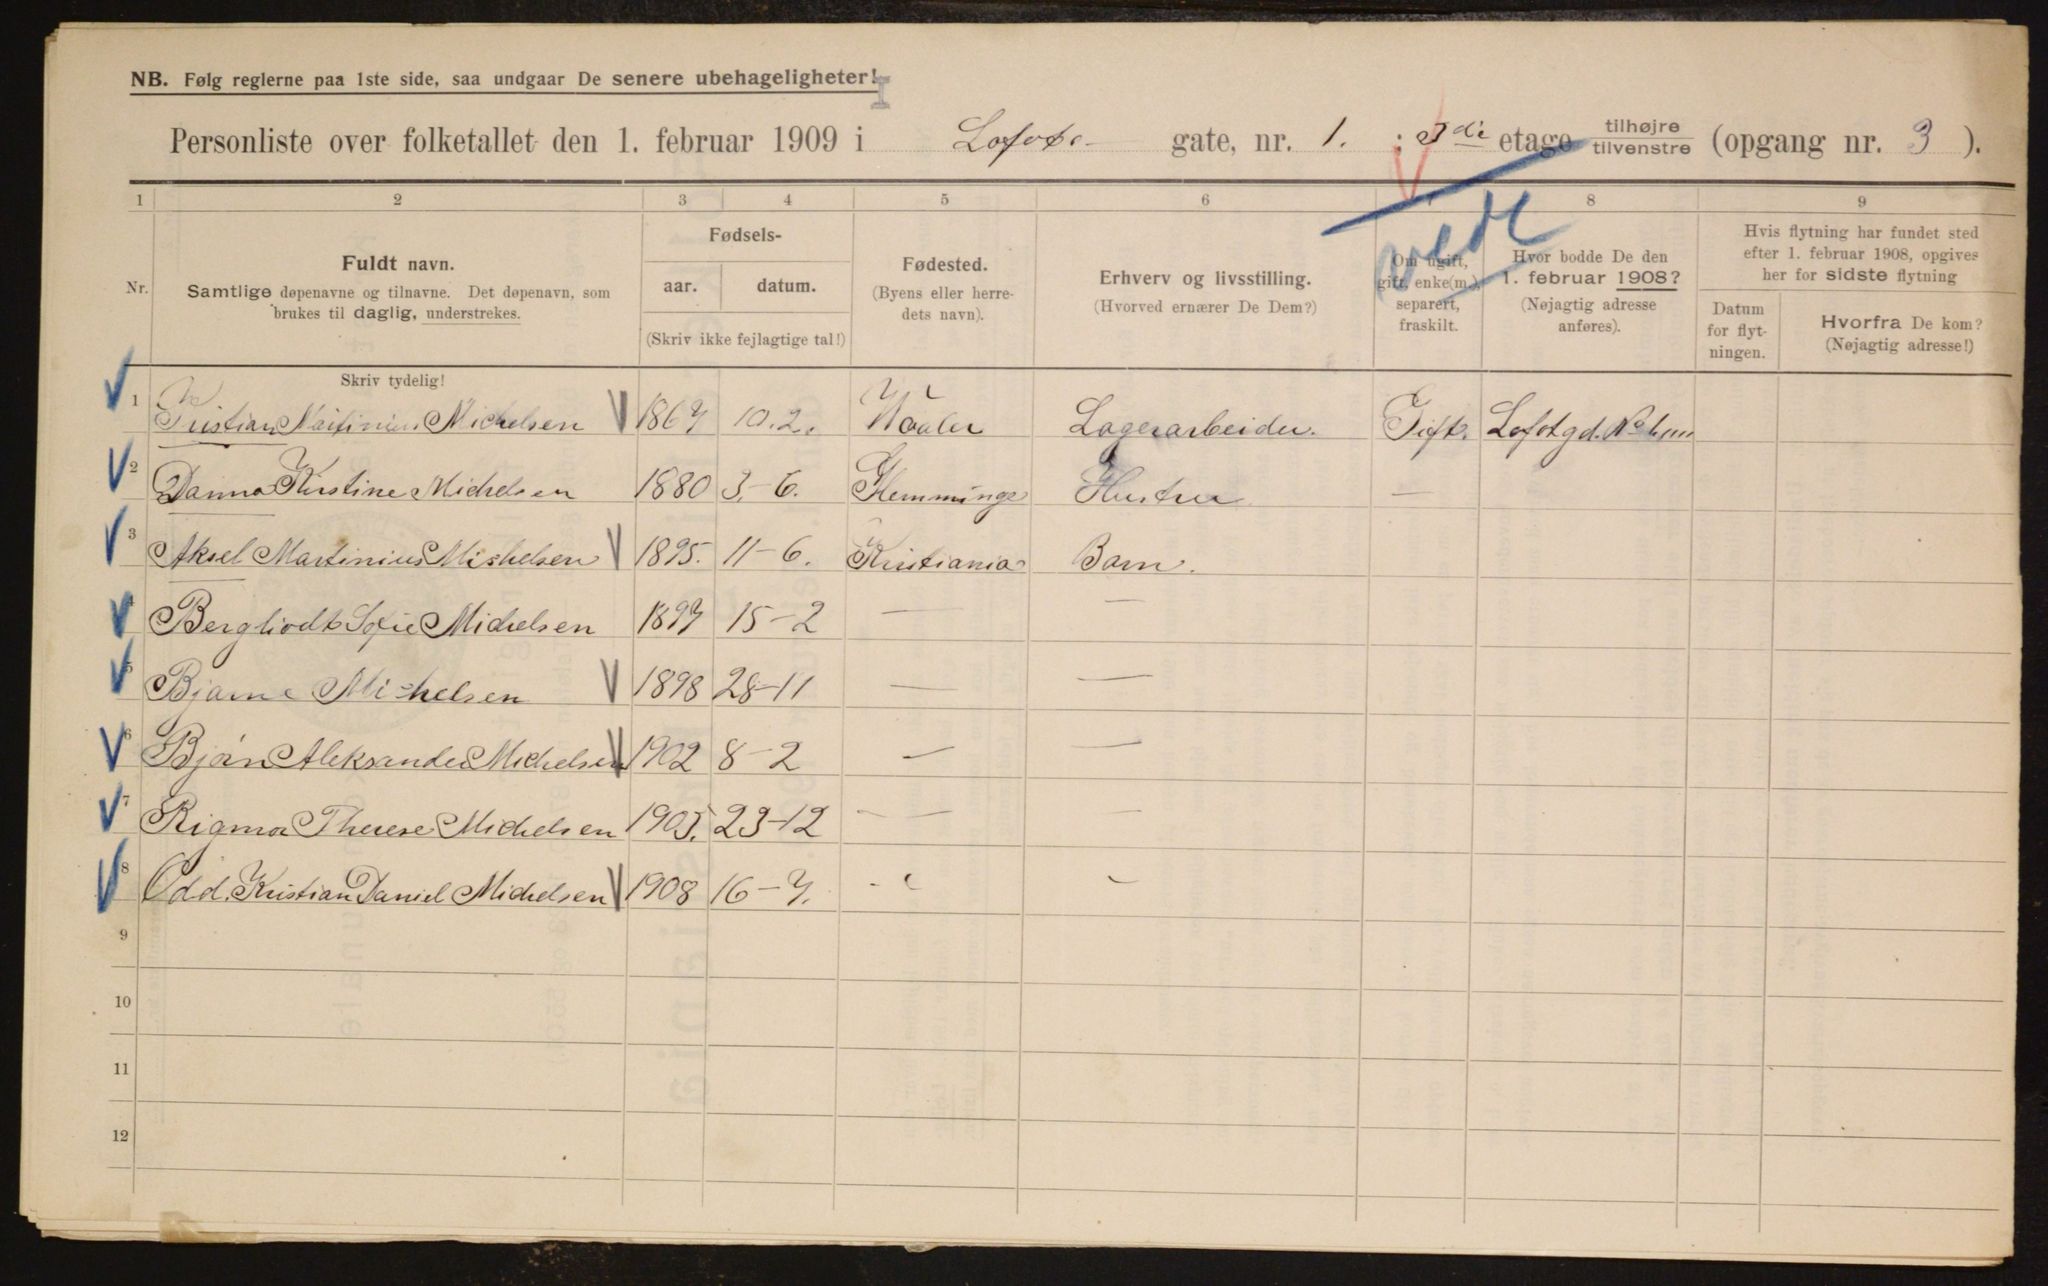 NB. Følg reglerne paa 1ste side, saa undgaar De senere ubehageligheter!
Personliste over folketallet den 1. februar 1909 i Lofote- gate, nr. 1. : 3die etage tilhøjre tilvenstre (opgang nr. 3 ).
1 2 3 4 5 6 7 8 9
Nr.
Fuldt navn.
Samtlige døpenavne og tilnavne. Det døpenavn, som
brukes til daglig, understrekes.
Fødsels-
aar. datum.
(Skriv ikke fejlagtige tal!)
Fødested.
(Byens eller herre-
dets navn).
Erhverv og livsstilling.
(Hvorved ernærer De Dem?)
Om ugift,
gift, enke(m.),
separert,
fraskilt.
Hvor bodde De den
1. februar 1908?
(Nøjagtig adresse
anføres).
Hvis flytning har fundet sted
efter 1. februar 1908, opgives
her for sidste flytning
Datum
for flyt-
ningen.
Hvorfra De kom?
(Nøjagtig adresse!)
Skriv tydelig!
1 Kristian Martinius Michelsen 1867 10.2. Vaaler Lagerarbeider. Gift. Lofotgd. No
2 Kirstine Michelsen 1880 3.-6. Glemminge Hustru —
3 Aksel Martinius Michelsen 1895. 11-6. Kristiania Barn.
4 Bergliodt Sofie Michelsen 1897 15-2 — —
5 Bjarne Michelsen 1898 28-11 — —
6 Bjørn Aleksander Michelsen 1902 8-2 — —
7 Rigmor Therese Michelsen 1905. 23-12 — — —
8 Odd. Kristian Daniel Michelsen 1908 16-7.
9
10
11
12